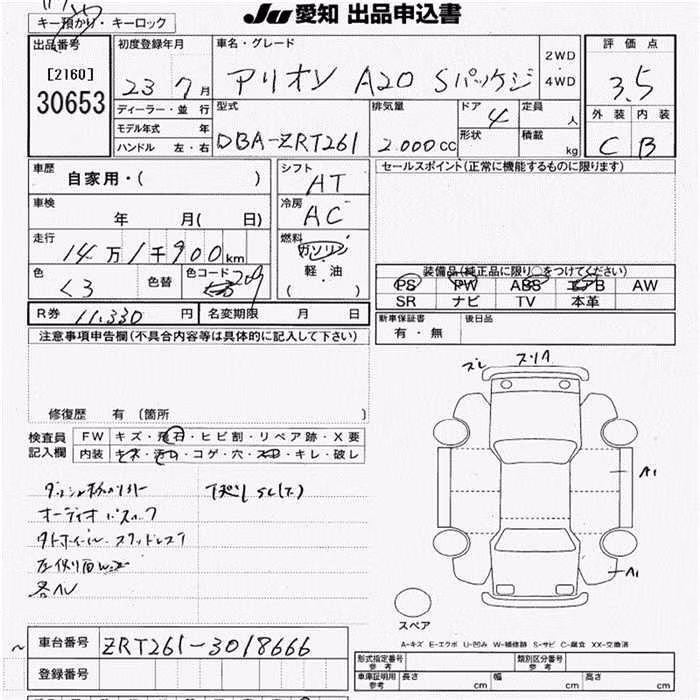 JU 愛知 出品申込書
キー預かり・キーロック
出品番号
[2160]
30653
初度登録年月
23 7月
ディーラー・並 行
モデル年式 年
ハンドル 左・右
車名・グレード
アリオン A20 Sパッケジ
2WD
4WD
評 価 点
3.5
外 装 内 装
C B
型式
DBA-ZRT261
排気量
2.000cc
ドア 4
形状
定員 人
積載 kg
車歴
自家用・( )
車検
年 月( 日)
走行
14万1千900km
色
くろ
色替
色コード
209
シフト
AT
冷房
AC
燃料
ガソリン
軽・油
( )
セールスポイント(正常に機能するものに限ります)
装備品(純正品に限り○をつけてください)
PS PW ABS エアB AW
SR ナビ TV 本革
新車保証書
有・無
後日品
R券 11,330 円
名変期限 月 日
注意事項申告欄(不具合内容等は具体的に記入して下さい)
修復歴 有 〔箇所 〕
検査員
記入欄
FW キズ・飛石・ヒビ割・リペア跡・X要
内装 キズ・汚れ・コゲ・穴・スレ・キレ・破レ
ズレ スリキ
A1
A1
スペア
A-キズ E-エクボ U-凹み W-補修跡 S-サビ C-腐食 XX-交換済
車台番号 ZRT261-3018666
登録番号
形式指定番号
参考
類別区分番号
参考
車庫証明用
参考
長さ cm 幅 cm 高さ cm